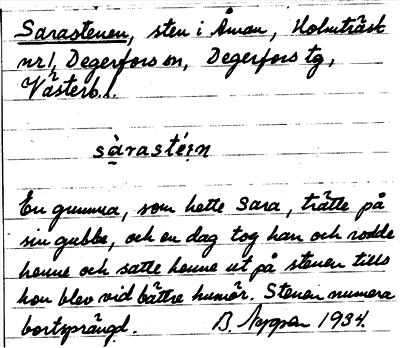 Sarastenen, sten i Åman, Holmträsk
nr 1, Degerfors sn, Degerfors tg,
Västerb. l.
sàrasté:n
En gumma, som hette Sara, trätte på
sin gubbe, och en dag tog han och rodde
henne och satte henne ut på stenen tills
hon blev vid bättre humör. Stenen numera
bortsprängd. B. Nyman 1934.